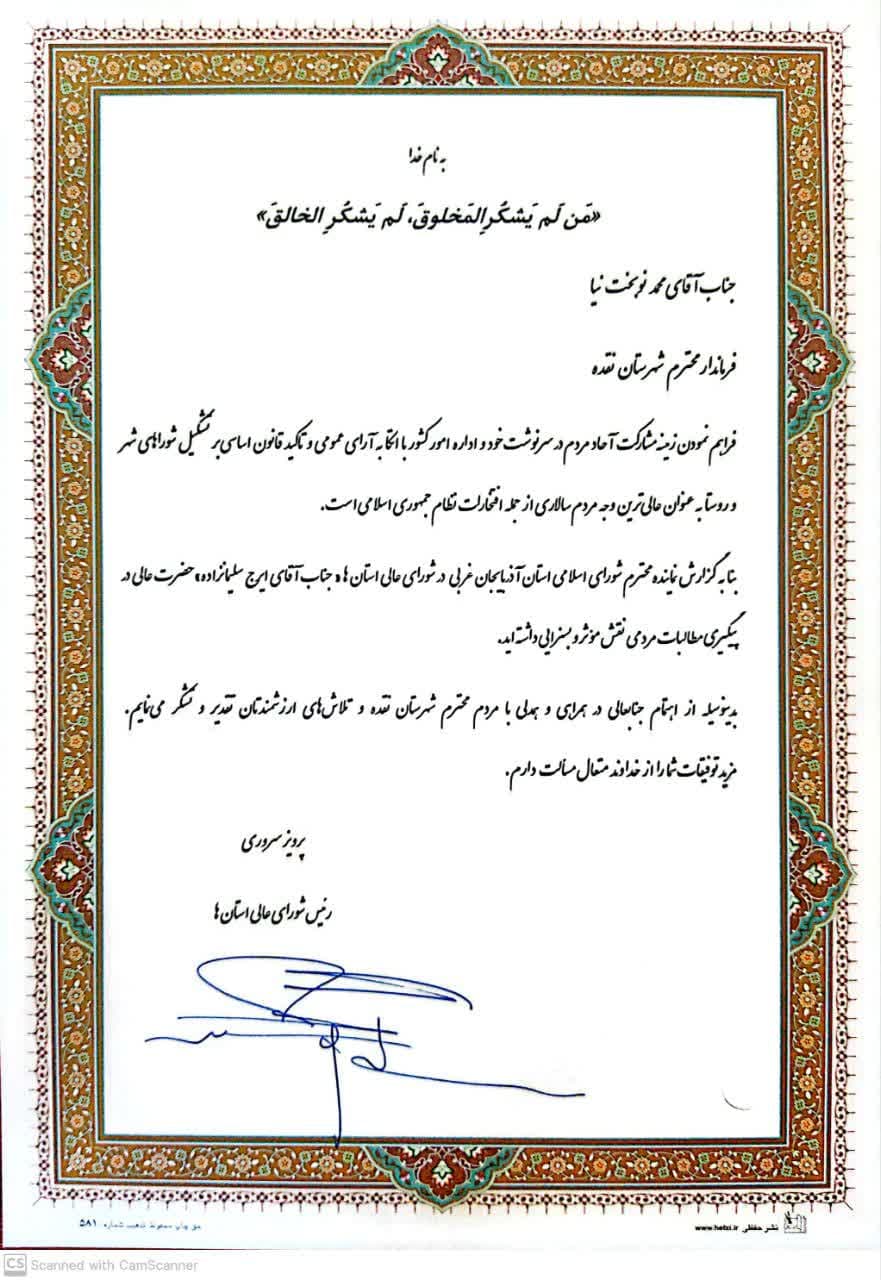 به نام خدا
«مَن لَم يَشكُرِ المَخلوقَ، لَم يَشكُرِ الخالقَ»
جناب آقای محمد نوبخت نیا
فرماندار محترم شهرستان نقده
فراهم نمودن زمینه مشارکت آحاد مردم در سرنوشت خود و اداره امور کشور با اتکا به آرای عمومی و تاکید قانون اساسی بر تشکیل شوراهای شهر
و روستا به عنوان عالی‌ترین وجه مردم سالاری از جمله افتخارات نظام جمهوری اسلامی است.
بنا به گزارش نماینده محترم شورای اسلامی استان آذربایجان غربی در شورای عالی استان ها «جناب آقای ایرج سلیمانزاده» حضرت عالی در
پیگیری مطالبات مردمی نقش مؤثر و بسزایی داشته اید.
بدینوسیله از اهتمام جنابعالی در همراهی و همدلی با مردم محترم شهرستان نقده و تلاش‌های ارزشمندتان تقدیر و تشکر می‌نمایم.
مزید توفیقات شما را از خداوند متعال مسألت دارم.
پرویز سروری
رئیس شورای عالی استان ها
نشر حفظی www.hefzi.ir
حق چاپ محفوظ تذهیب شماره ۵۸۱
CS Scanned with CamScanner